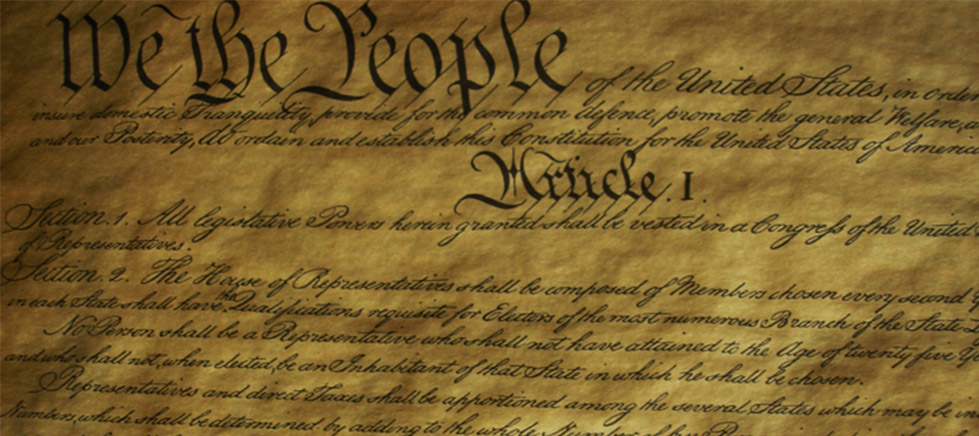 We the People of the United States, in Orde
insure domestic Tranquility, provide for the common defence, promote the general Welfare,
and our Posterity, do ordain and establish this Constitution for the United States of America
Article. I.
Section. 1. All legislative Powers herein granted shall be vested in a Congress of the United
of Representatives.
Section. 2. The House of Representatives shall be composed of Members chosen every second
in each State shall have the Qualifications requisite for Electors of the most numerous Branch of the State
No Person shall be a Representative who shall not have attained to the Age of twenty five
and who shall not, when elected, be an Inhabitant of that State in which he shall be chosen.
Representatives and direct Taxes shall be apportioned among the several States which may be in
Numbers, which shall be determined by adding to the whole Number of